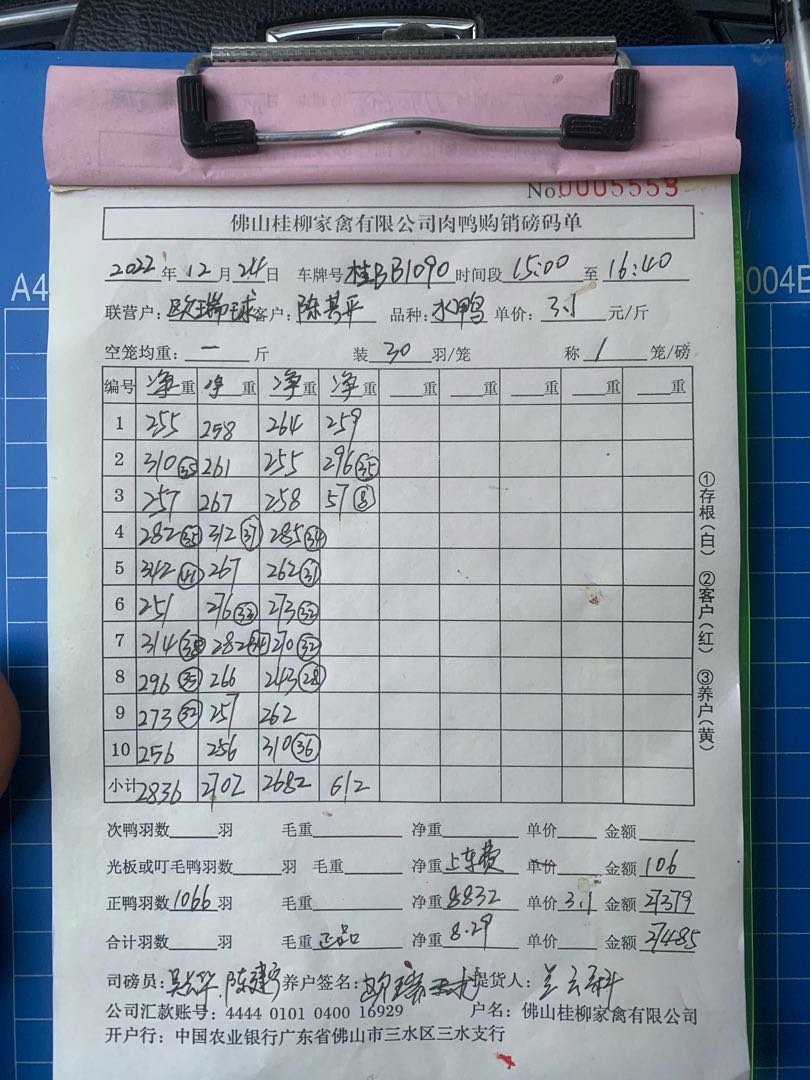 No.0005553
佛山桂柳家禽有限公司肉鸭购销磅码单
2022年12月24日 车牌号桂BB1090时间段15:00至16:40
A4
004E
联营户：欧瑞球客户：陈其平 品种：水鸭 单价：3.1元/斤
空笼均重：一斤 装30羽/笼 称1笼/磅
编号 净重 净重 净重 净重 重 重 重 重 重
1 255 258 264 259
2 310㉟ 261 255 296㉟
3 257 267 258 57⑧
4 282㉟ 312㊲ 285㉞
5 342㊶ 267 262㉛
6 251 276㉝ 273㉜
7 314㊳ 282㉞ 270㉜
8 296㉟ 266 243㉘
9 273㉜ 257 262
10 256 256 310㊱
小计 2836 2702 2682 612
①存根（白） ②客户（红） ③养户（黄）
次鸭羽数 羽 毛重 净重 单价 金额
光板或叮毛鸭羽数 羽 毛重 净重上车费 单价 金额106
正鸭羽数1066羽 毛重 净重8832 单价3.1 金额27379
合计羽数 羽 毛重正品 净重8.29 单价 金额27485
司磅员： 养户签名：欧瑞球提货人：
公司汇款账号：4444 0101 0400 16929 户名：佛山桂柳家禽有限公司
开户行：中国农业银行广东省佛山市三水区三水支行